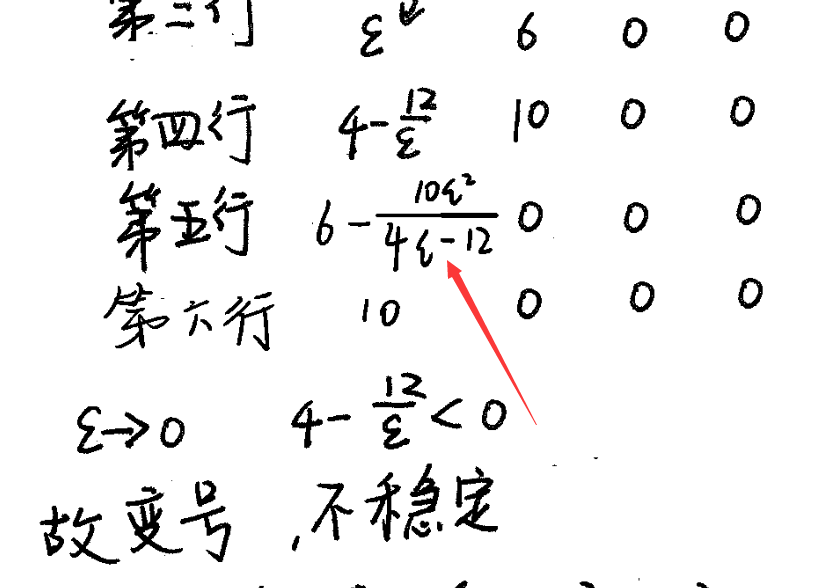 第三行 ε 6 0 0
第四行 4-12/ε 10 0 0
第五行 6-10ε²/(4ε-12) 0 0 0
第六行 10 0 0 0
ε→0 4-12/ε<0
故变号,不稳定